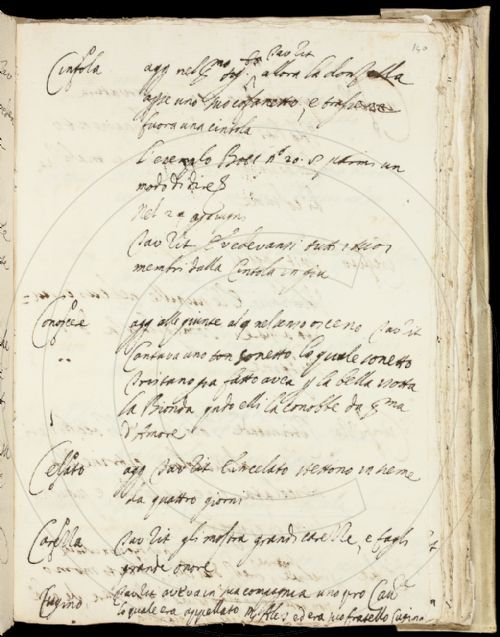 140
Cintola agg nel allora la donzella
apre uno suo cofanetto, e trasse
fuora una cintola
L'esemplo Bocc n.º 20. 8 parmi un
modo di dire
Nel 2 aggiugni
Tav Rit E vedevansi tutti i suoi
membri dalla Cintola in giu
Conoscere agg alle giunte al nel senso osceno Tav Rit
Cantava uno bon sonetto lo quale sonetto
Tristano fatto avea la bella Isotta
la Bionda quando elli la conobbe da prima
d'Amore
Celato agg Tav Rit E in celato stettono insieme
da quattro giorni
Carezza Tav Rit gli mostra grandi carezze, e fagli
grande onore
Cugino Tav Rit aveva in sua compagnia uno pro Cav
lo quale era appellato ed era suo fratello Cugino